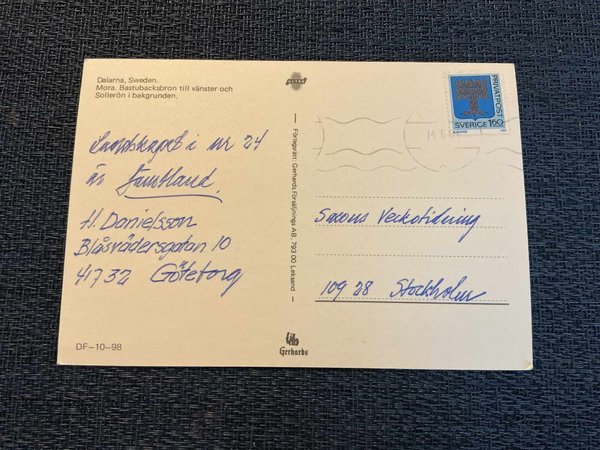 Dalarna, Sweden.
Mora. Bastubacksbron till vänster och
Sollerön i bakgrunden.
PRIVATPOST
SVERIGE 160
Landskapet i nr 24
är Jämtland.
H. Danielsson
Blåsvädersgatan 10
417 32 Göteborg
Förlagsrätt: Gerhards Försäljnings AB, 793 00 Leksand
Saxons Veckotidning
109 28 Stockholm
DF-10-98
Gerhards